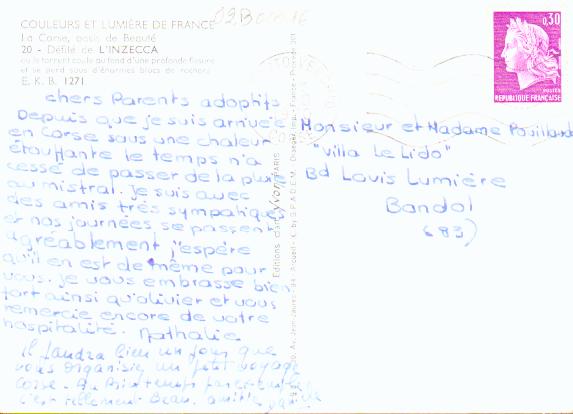 COULEURS ET LUMIÈRE DE FRANCE
La Corse, oasis de Beauté
20 - Défilé de L'INZECCA
où le torrent coule au fond d'une profonde fissure
et se perd sous d'énormes blocs de rochers
E. K. B. 1271
0,30
POSTES
REPUBLIQUE FRANÇAISE
chers Parents adoptifs
Depuis que je suis arrivée
en Corse sous une chaleur
étouffante le temps n'a
cessé de passer de la pluie
au mistral. Je suis avec
des amis très sympatiques
et nos journées se passent
agréablement j'espère
qu'il en est de même pour
vous. je vous embrasse bien
fort ainsi qu'olivier et vous
remercie encore de votre
hospitalité. Nathalie
Il faudra bien un jour que
vous organisiez un petit voyage
Corse. Au Printemps
c'est tellement beau. amitiés
Editions d'art yvon PARIS
Monsieur et Madame
"Villa Le Lido"
Bd Louis Lumière
Bandol
(83)